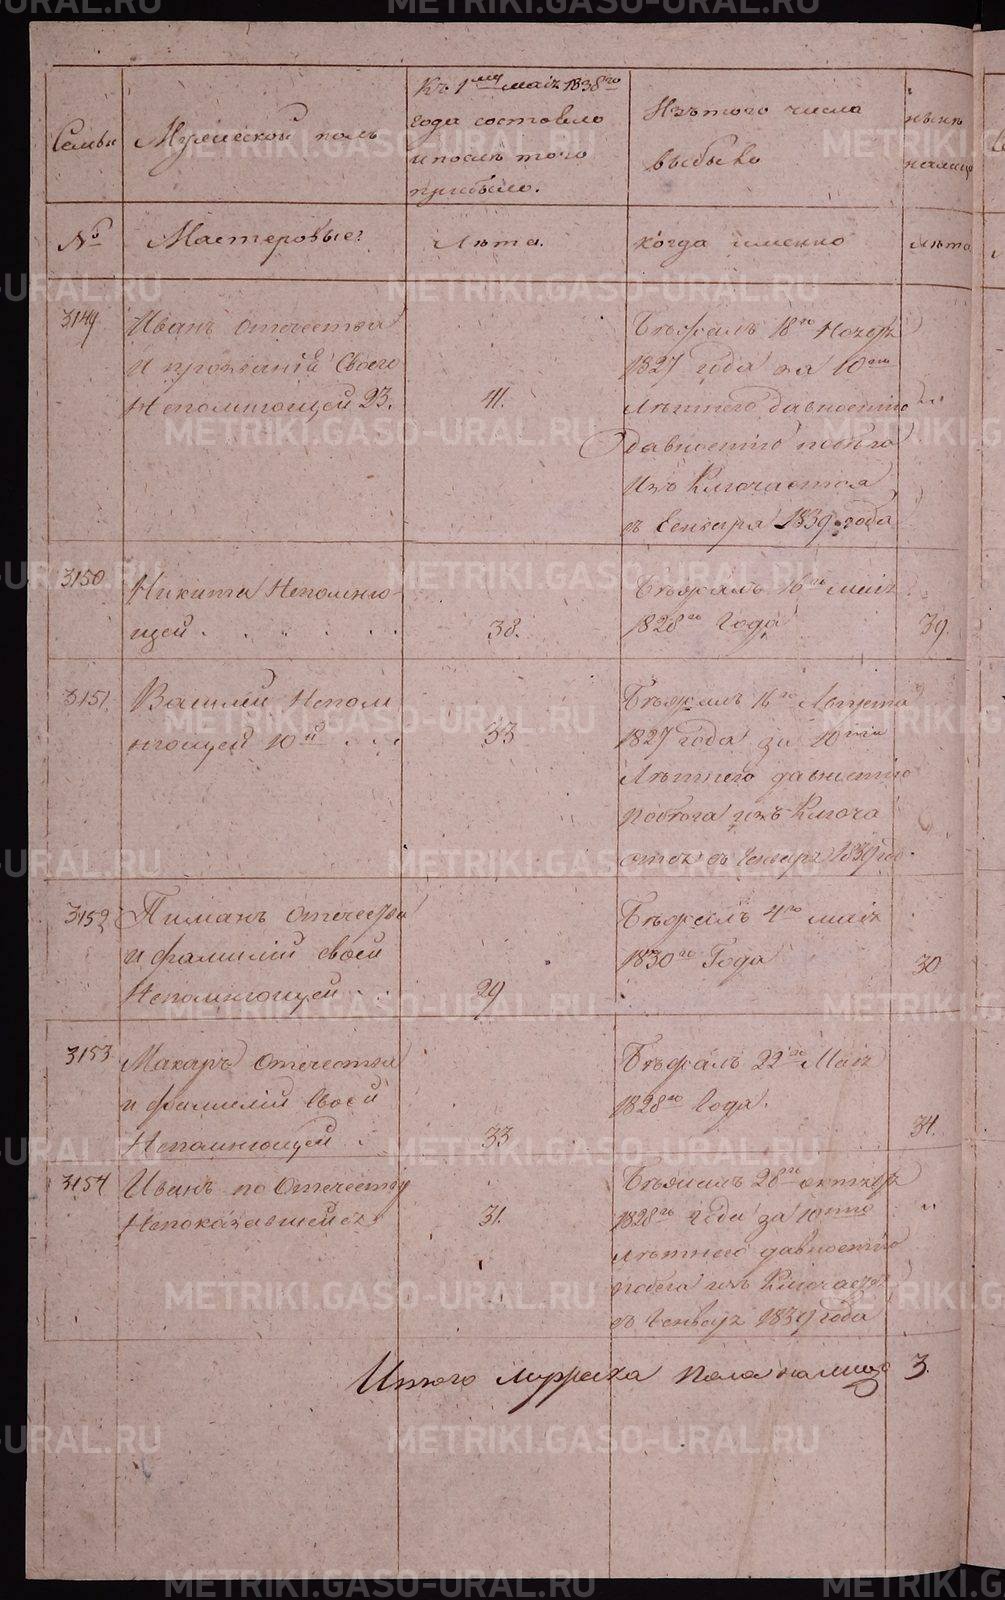 Семьи
Мужеской полъ
Къ 1му маія 1838го
года состояло
и послѣ того
прибыло.
Изъ того числа
выбыло
нынѣ
налицо
№
Мастеровые:
Лѣта.
когда именно
лѣта
3149
Иванъ отечества
и прозванія своего
Непомнющей 23.
41.
Бѣжалъ 18го Ноябр.
1827 года за 10ти
лѣтнею давностію
давностію побѣга
изъ ключается
съ Генваря 1839 года
„
3150
Никита Непомню-
щей . . . . . .
38.
Бѣжалъ 16го маія
1828го Года
39.
3151.
Василий Непом
нющей 10й . . .
33
Бѣжалъ 16го Августа
1827 года за 10ти
лѣтнею давностію
побѣга изъ Ключа
ется съ Генваря 1839 го.
3152
Пиманъ отечества
и фамиліи своей
Непомнющей . .
29
Бѣжалъ 4го маія
1830го Года
30
3153
Макаръ отечества
и фамиліи своей
Непомнющей .
33
Бѣжалъ 22го Маія
1828го Года.
34.
3154
Иванъ по отечеству
Непоказавшейся
31.
Бѣжалъ 28го октябр
1828го года за 10тию
лѣтнею давностію
побега изъ Ключается
съ Генваря 1839 года
„
Итого мужеска пола налицо 3.
METRIKI.GASO-URAL.RU